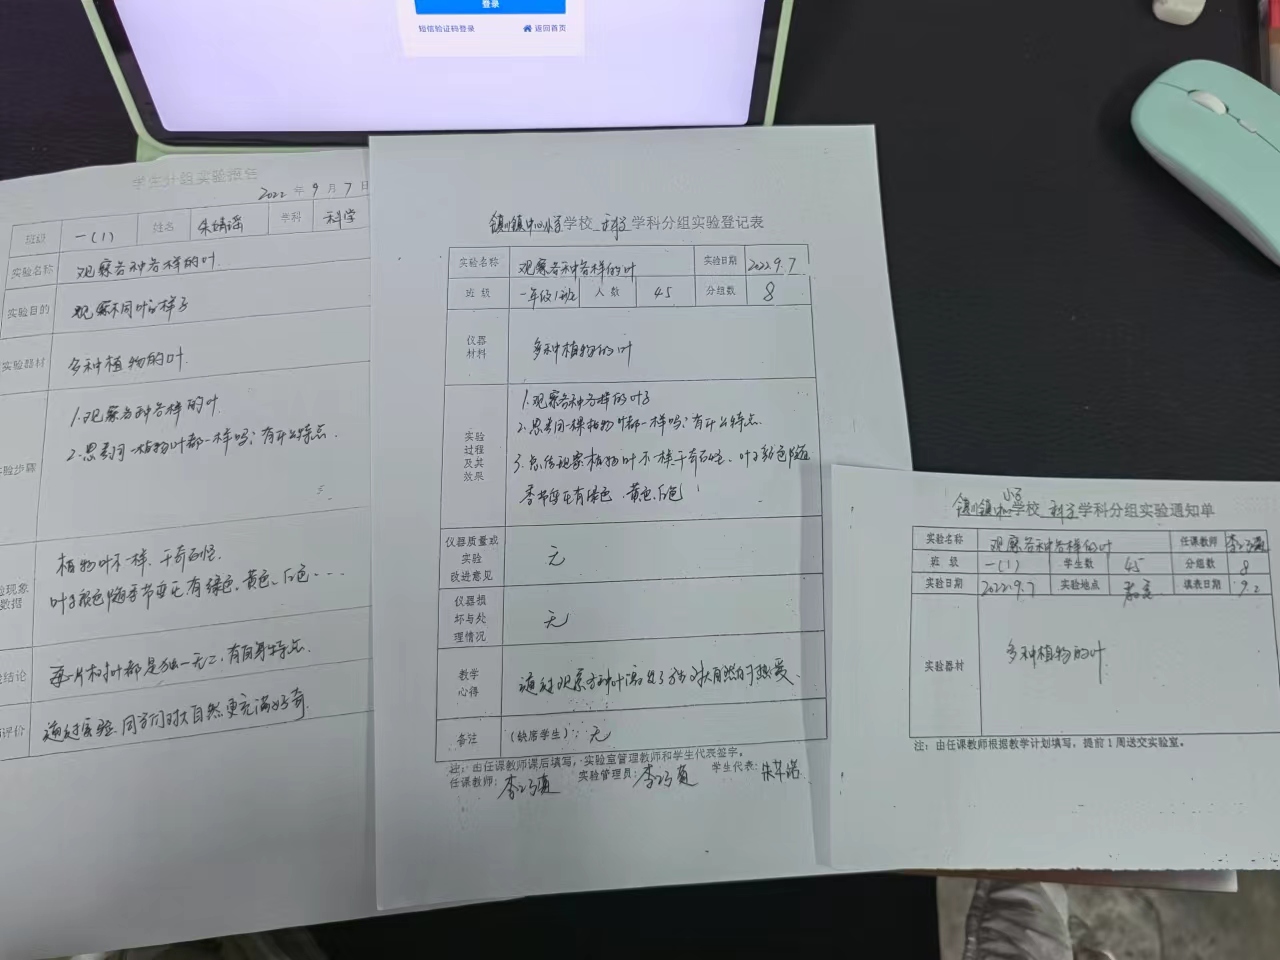 登录
短信验证码登录 返回首页
学生分组实验报告
2022 年 9 月 7 日
班级 一(1) 姓名 朱婧谣 学科 科学
实验名称 观察各种各样的叶
实验目的 观察不同叶的样子
实验器材 多种植物的叶
验步骤
1.观察各种各样的叶
2.思考同一植物叶都一样吗?有什么特点.
验现象
数据
植物叶不一样、千奇百怪.
叶子颜色随季节变化有绿色、黄色、红色....
结论 每一片树叶都是独一无二,有自身特点.
评价 通过实验,同学们对大自然更充满好奇
镇中心小学学校 科学学科分组实验登记表
实验名称 观察各种各样的叶 实验日期 2022.9.7
班 级 一年级1班 人 数 45 分组数 8
仪器
材料
多种植物的叶
实验
过程
及其
效果
1.观察各种各样的叶子
2.思考同一棵植物叶都一样吗?有什么特点.
3.总结观察植物叶不一样千奇百怪、叶子颜色随
季节变化有绿色、黄色、红色
仪器质量或
实验
改进意见
无
仪器损
坏与处
理情况
无
教学
心得
通过观察各种叶激发了学生对大自然的热爱、
备注 (缺席学生):无
注:由任课教师课后填写,实验室管理教师和学生代表签字。
任课教师: 李 实验管理员: 李 学生代表: 朱
小学
镇中心学校 科学学科分组实验通知单
实验名称 观察各种各样的叶 任课教师 李
班 级 一(1) 学生数 45 分组数 8
实验日期 2022.9.7 实验地点 教室 填表日期 9.2
实验器材 多种植物的叶
注:由任课教师根据教学计划填写,提前1周送交实验室。